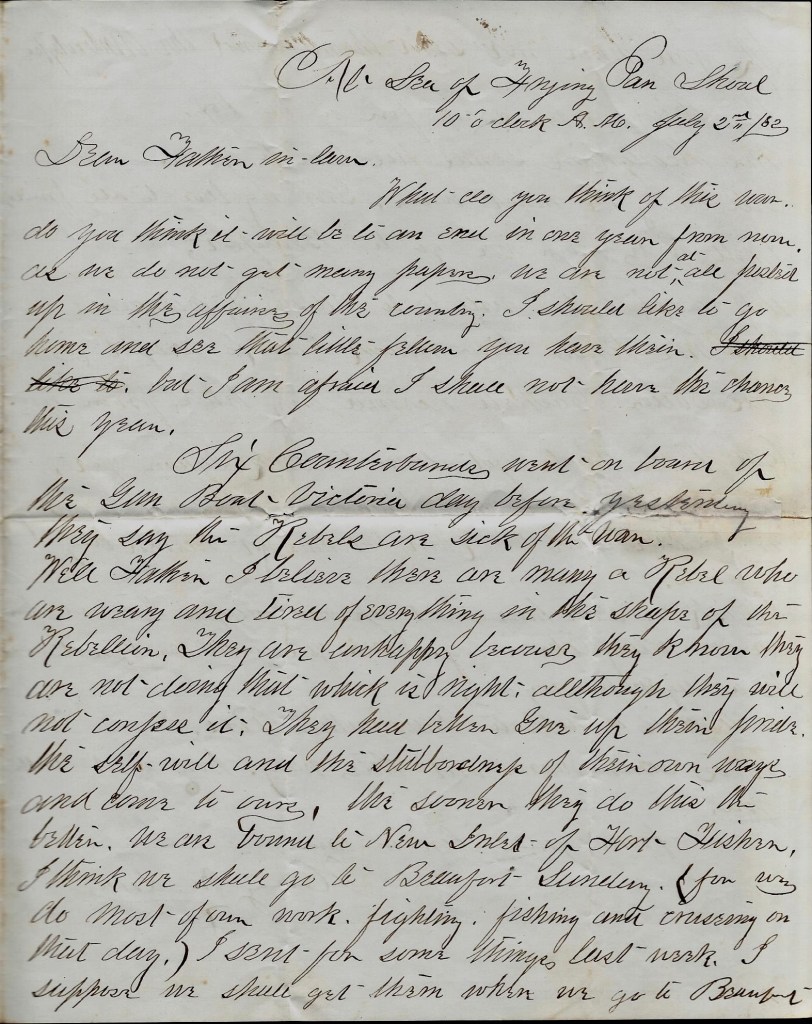 At Sea of Frying Pan Shoal
10 o'clock A.M. July 2nd /62
Dear Father in-law.
What do you think of this war.
do you think it will be to an end in one year from now.
as we do not get many papers. we are not at all posted
up in the affaires of the country. I should like to go
home and see that little fellow you have their. I should
like to. but I am afraid I shall not have the chance
this year.
Six Counterbands went on board of
the Gun Boat Victoria day before yesterday
they say the Rebels are sick of the war.
Well Father I believe there are many a Rebel who
are weary and tired of everything in the shape of the
Rebellion. They are unhappy because they know they
are not doing that which is right. allthough they will
not confess it. They had better Give up their pride.
the self-will and the stubbordness of their own ways
and come to ours, the sooner they do this the
better. We are bound to New Inlet of Fort Fisher.
I think we shall go to Beaufort Sunday. (for we
do most of our work. fighting. fishing and cruseing on
that day.) I sent for some things last week. I
suppose we shall get them when we go to Beaufort